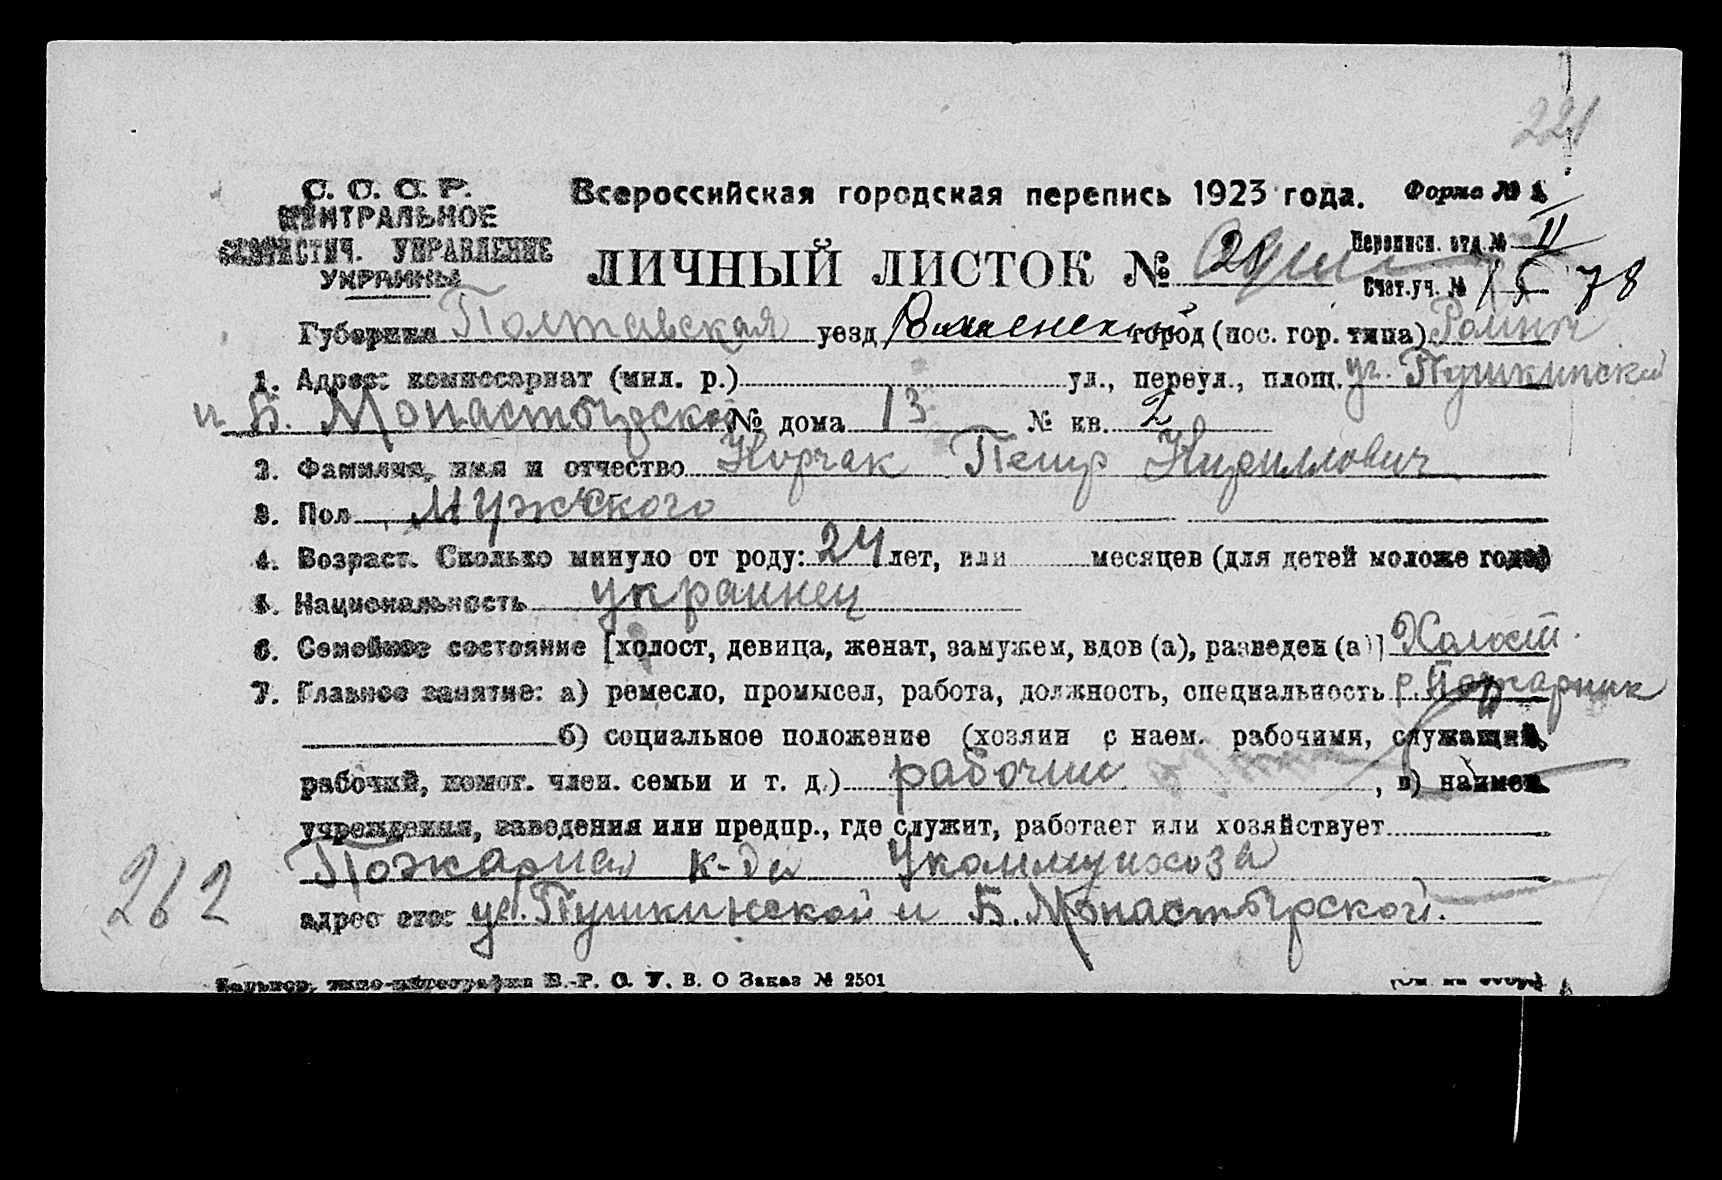 221
С. С. С. Р.
ЦЕНТРАЛЬНОЕ
СТАТИСТИЧ. УПРАВЛЕНИЕ
УКРАИНЫ
Всероссийская городская перепись 1923 года. Форма № 1
Переписн. отд. № II
ЛИЧНЫЙ ЛИСТОК № 21
Счет.уч. № 15 78
Губерния Полтавская уезд Роменский город (пос. гор. типа) Ромны
1. Адрес: комиссариат (мил. р.) ул., переул., площ. уг. Пушкинской
и Б. Монастырской № дома 13 № кв. 2
2. Фамилия, имя и отчество Корчак Петр Кириллович
3. Пол Мужского
4. Возраст. Сколько минуло от роду: 24 лет, или месяцев (для детей моложе года)
5. Национальность украинец
6. Семейное состояние [холост, девица, женат, замужем, вдов (а), разведен (а)] Холост.
7. Главное занятие: а) ремесло, промысел, работа, должность, специальность Пожарник
б) социальное положение (хозяин с наем. рабочими, служащий,
рабочий, помог. член. семьи и т. д.) рабочий, в) наимен.
учреждения, заведения или предпр., где служит, работает или хозяйствует
Пожарная к-да Укоммунхоза
262
адрес его: ул. Пушкинской и Б. Монастырской.
Харьков, типо-литография В.-Р. С. У. В. О Заказ № 2501
(См. на обор.)